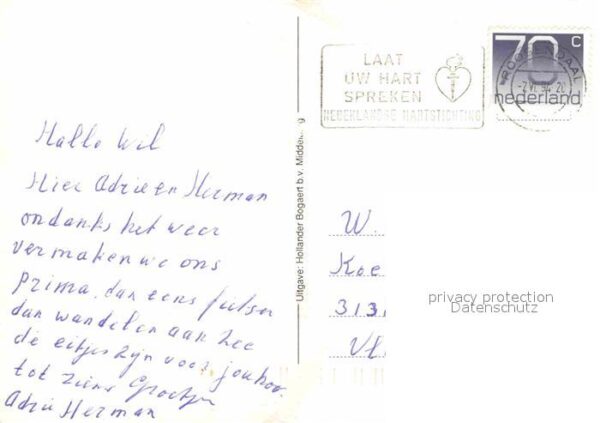 Hallo Wil
Hier Adrie en Herman
ondanks het weer
vermaken we ons
prima. dan eens fietsen
dan wandelen aan zee
de eitjes zijn voor jou hoor.
tot ziens Groetjes
Adrie Herman
Uitgave: Hollander Bogaert b.v. Middelburg
LAAT
UW HART
SPREKEN
NEDERLANDSE HARTSTICHTING
ROOSENDAAL
70 c
nederland
W.
Koe
313
Vl
privacy protection
Datenschutz